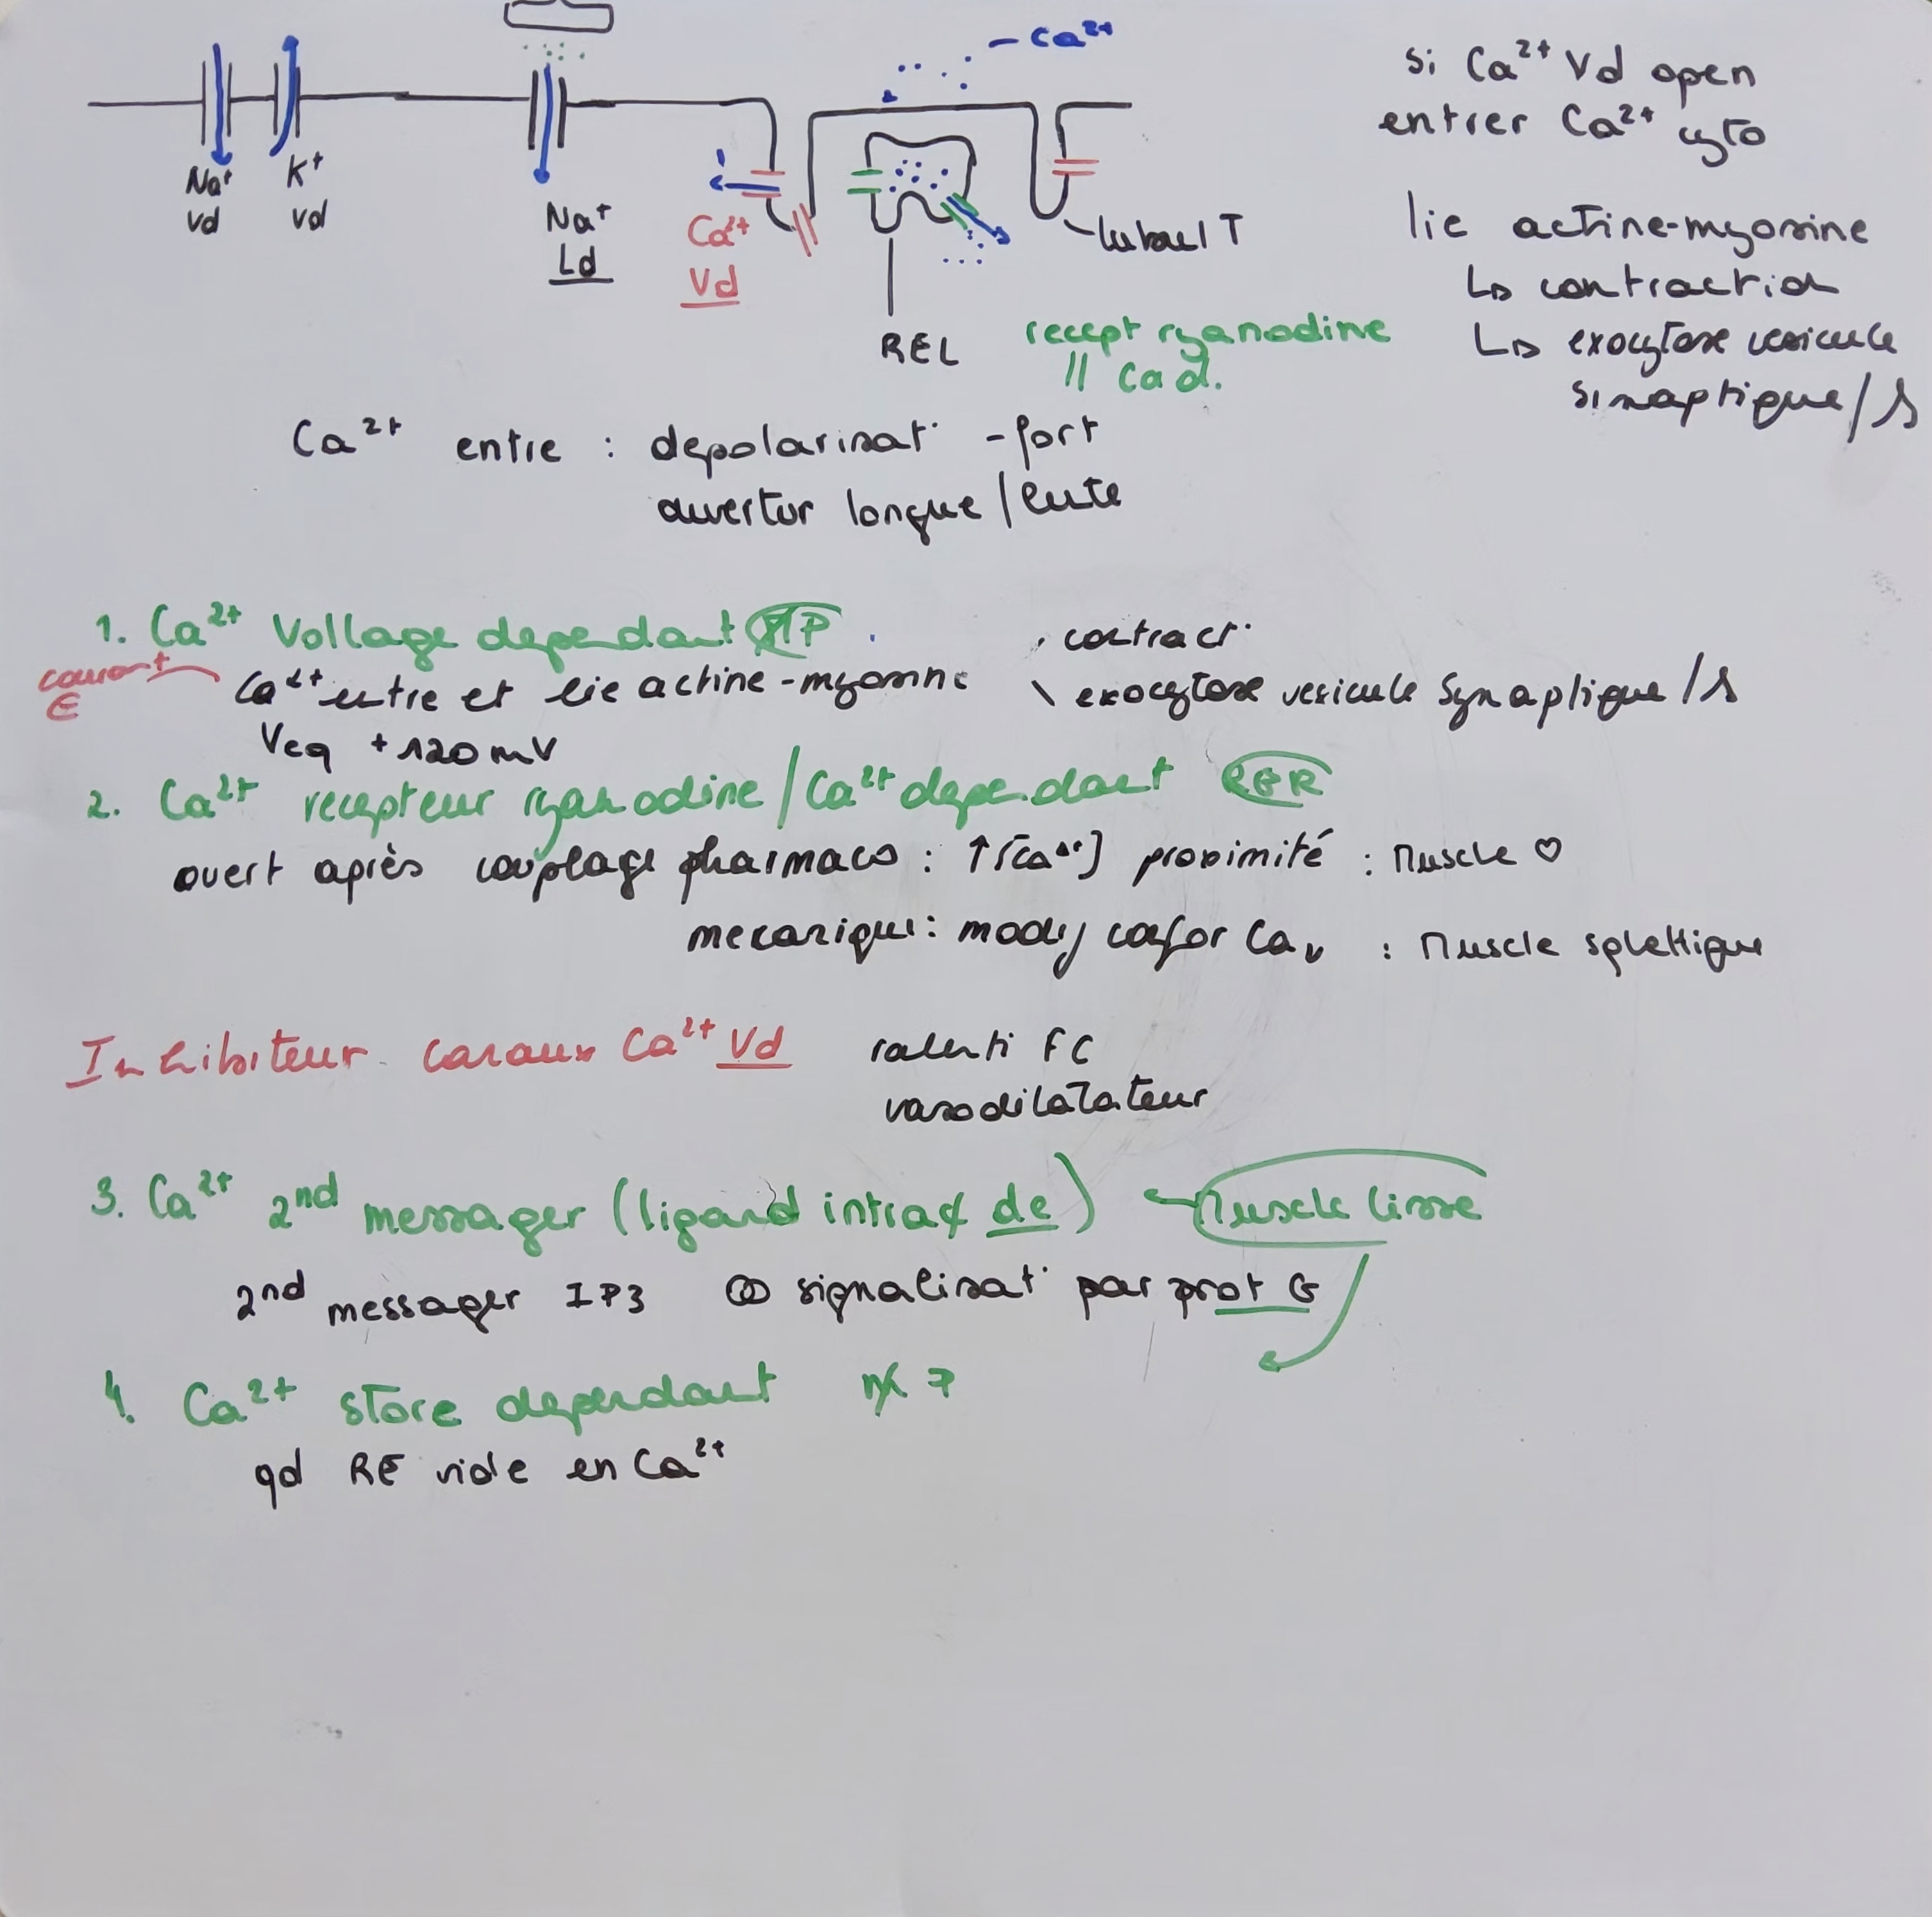 - Ca²⁺
Na⁺ Vd
K⁺ Vd
Na⁺ Ld
Ca²⁺ Vd
REL
tubul T
recept ryanodine
// Ca d.
si Ca²⁺ Vd open
entrer Ca²⁺ cyto
lie actine-myosine
↳ contraction
↳ exocytose vesicule
sinaptique / s
Ca²⁺ entre : depolarisat° - fort
ouvertur longue / lente
1. Ca²⁺ Voltage dependant MP
courant E
Ca²⁺ entre et lie actine-myosine
. contract°
\ exocytose vesicule synaptique / s
Veq + 120 mV
2. Ca²⁺ recepteur ryanodine / Ca²⁺ dependant
ouvert après couplage pharmaco : ↑[Ca²⁺] proximité : Muscle ♡
mecanique : modif confor Cav : Muscle sqlettique
Inhibiteur canaux Ca²⁺ Vd
ralenti FC
vasodilatateur
3. Ca²⁺ 2nd messager (ligand intra de) ← Muscle lisse
2nd messager IP3 signalisat° par prot G
4. Ca²⁺ store dependant
qd RE vide en Ca²⁺